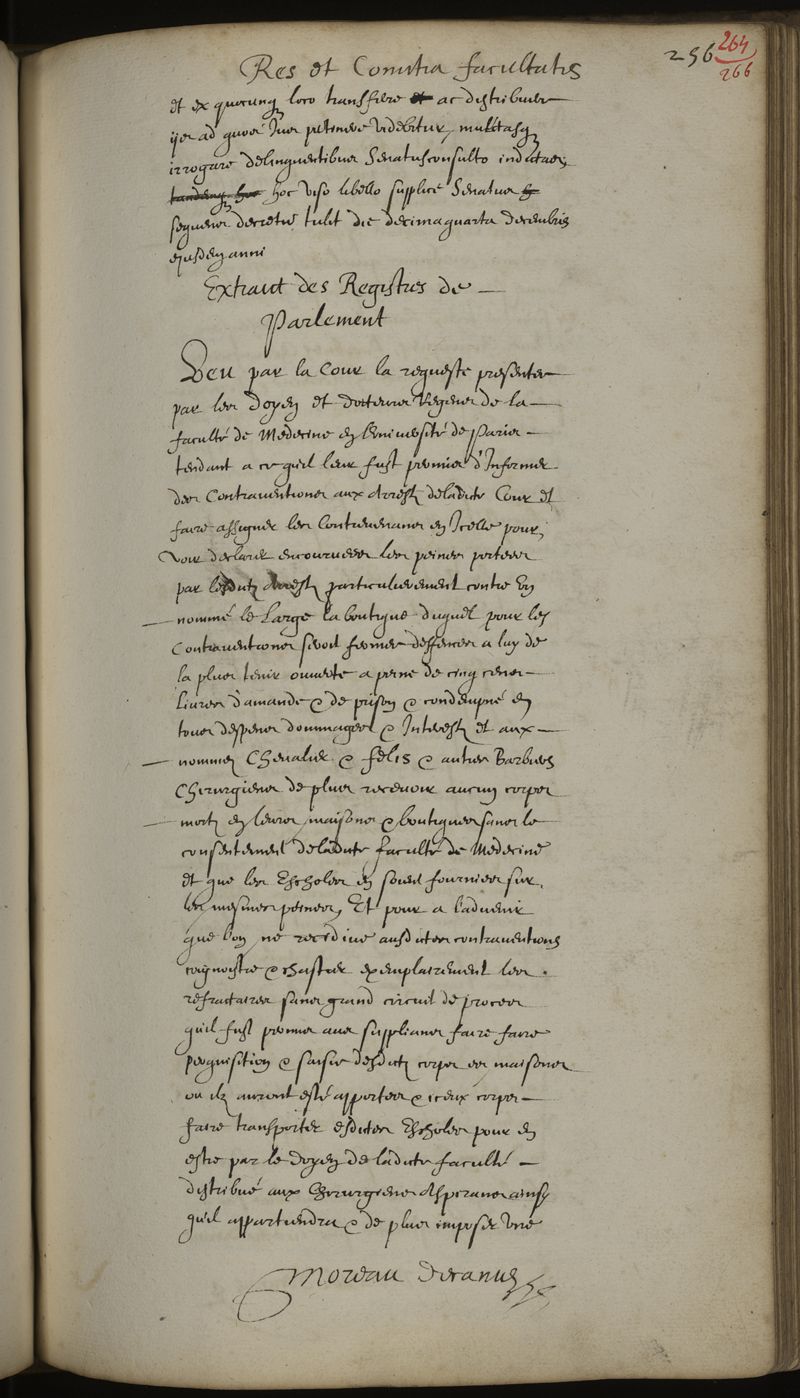 256 264
266
Res et Comitia facultatis
et ex quocunq loco transferre et ac distribuere
iis ad quos Jure pertinere videbitur, mulctasq
irrogare delinquentibus Senatusconsulto indictas,
hoc viso libello supplice Senatus
sequens decretu tulit die decimaquarta decembris
ejusdem anni
Extraict des Registres de
Parlement
Veu par la Cour la requeste presentee
par les doyen et docteurs Regens de la
faculté de Medecine en l'université de Paris
tendant a ce qu'il leur fust permis d'Informer
des Contraventions aux Arrestz deladicte Cour et
faire assigner les Contrevenans en Icelle pour,
voir declarer encourues les peines portees
par lesdictz Arrestz particulierement contre Un
nommé le Large la boutique duquel pour les
Contraventions seroit fermee deffences a luy de
la plus tenir ouverte a peine de cinq cens
livres d'amande & de prison & condempné en
tous despens dommages & Interestz et aux
nommez Chevalier & felis & autres Barbiers
Chirurgiens de plus recevoir aucuns corps
mortz en leurs maisons & boutiques sans le
consentement deladicte faculté de Medecine
et que les Escholes en soient fournies sur,
les mesmes peines, Et pour a l'advenir
que l'on ne recidive ausdictes contraventions
cognoistre & chastier exemplairement les
refractaires sans grand circuit de proces
qu'il fust permis aux supplians faire faire
perquisition & saisie desdictz corps es maisons
ou ilz auront esté apportez & iceux corps
faire transporter esdictes Escholes pour en
estre par le Doyen de ladicte faculté
distribué aux Chirurgiens Aspirans ainsy
qu'il appartiendra & de plus imposer Une
Moreau decanus